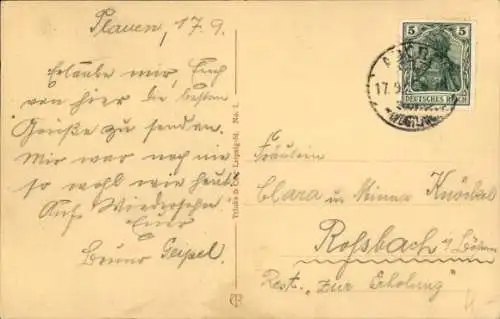 Plauen, 17.9.
Erlaube mir, Euch
von hier die besten
Grüße zu senden.
Mir war noch nie
so wohl wie heut.
Auf Wiedersehn
Euer
Bruno Geipel
Trinks & Co., Leipzig-St. No. 1.
5 5
DEUTSCHES REICH
17.9
Fräulein
Clara u. Minna Knöckel
Roßbach i/Böhm
Rest. "zur Erholung"